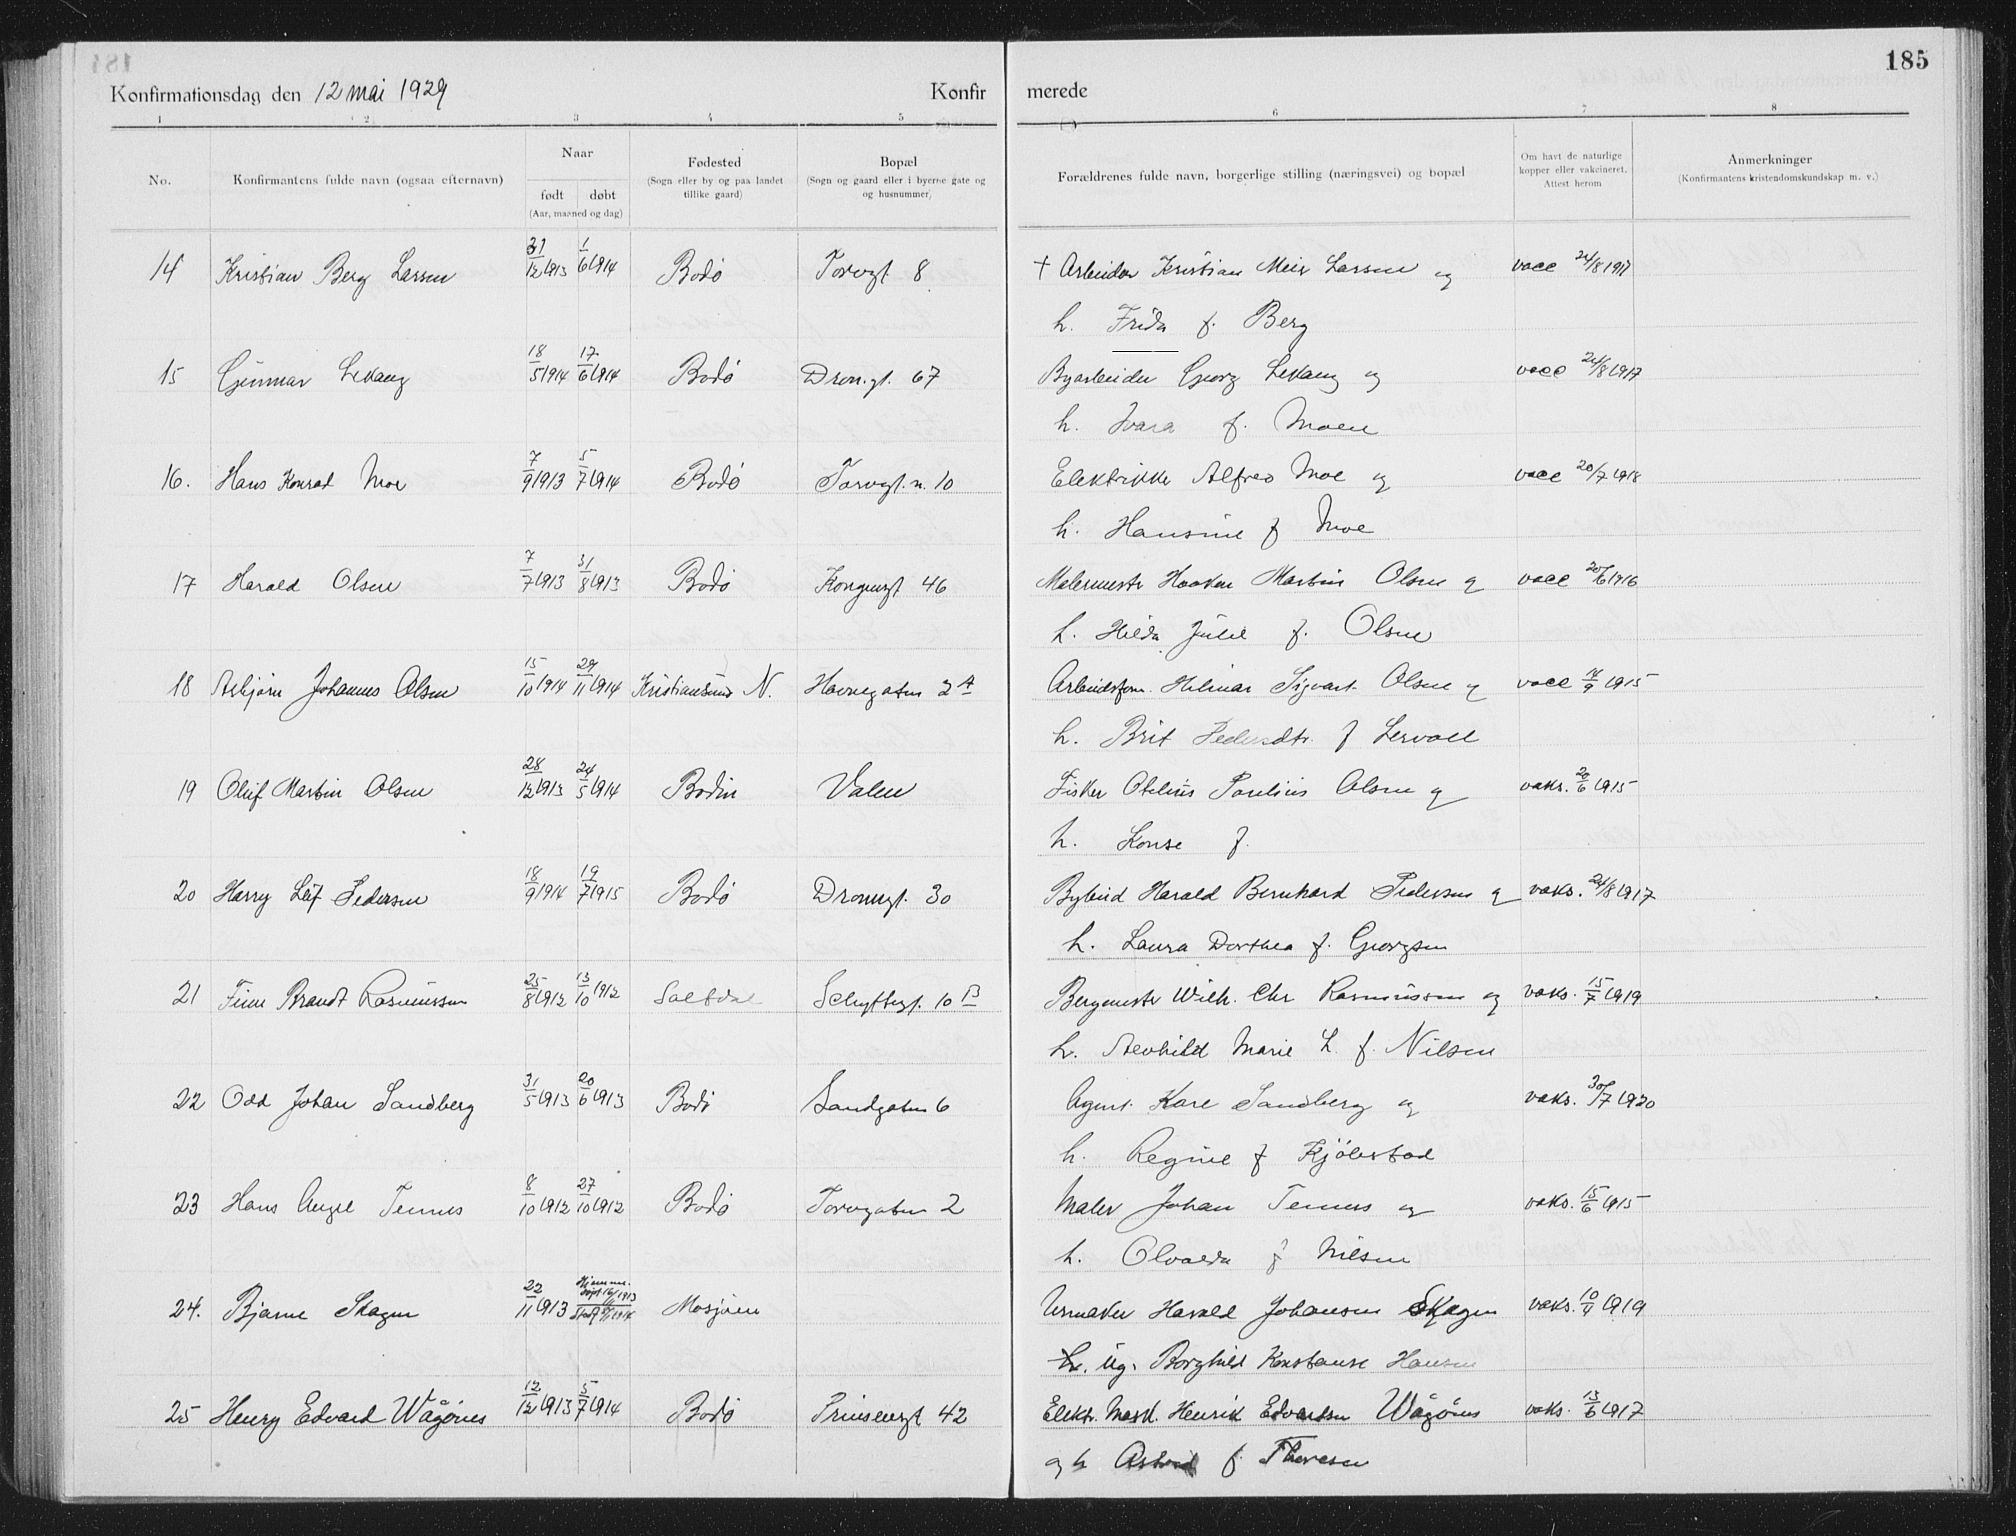 185
Konfirmationsdag den 12 mai 1929 Konfir merede
1 2 3 4 5 6 7 8
No. Konfirmantens fulde navn (ogsaa efternavn) Naar født døbt (Aar, maaned og dag) Fødested (Sogn eller by og paa landet tillike gaard) Bopæl (Sogn og gaard eller i byerne gate og og husnummer) Forældrenes fulde navn, borgerlige stilling (næringsvei) og bopæl Om havt de naturlige kopper eller vakcineret. Attest herom Anmerkninger (Konfirmantens kristendomskundskap m. v.)
14 Kristian Berg Larsen 31/12 1913 1/6 1914 Bodø Torvgt 8 † Arbeider Kristian Meier Larsen og vacc 24/8 1917
h. Frida f. Berg
15 Gunnar Lekang 18/5 1914 17/6 1914 Bodø Dron.gt. 67 Byarbeider Georg Lekang og vacc 24/8 1917
h. Ivara f. Moen
16. Hans Konrad Moe 7/9 1913 5/7 1914 Bodø Torvgt. n. 10 Elektrikker Alfred Moe og vacc 20/7 1918
h. Hansine f Moe
17 Harald Olsen 7/7 1913 31/8 1913 Bodø Kongensgt 46 Malermestr Haakon Martin Olsen og vacc 20/6 1916
h. Hilda Julie f. Olsen
18 Asbjørn Johannes Olsen 15/10 1914 29/11 1914 Kristiansund N. Havnegaten 2 A Arbeidsform. Hilmar Sigvart Olsen og vacc 14/9 1915
h. Brit Pedersdtr. f Lervoll
19 Oluf Martin Olsen 28/12 1913 24/5 1914 Bodin Valen Fisker Otelius Paulius Olsen og vaks. 20/6 1915
h. Konse f.
20 Harry Leif Pedersen 18/9 1914 19/7 1915 Bodø Dronngt. 30 Bybud Harald Bernhard Pedersen og vaks. 24/8 1917
h. Laura Dorthea f. Georgsen
21 Finn Brandt Rasmussen 25/8 1912 13/10 1912 Saltdal Schyttesgt. 10 B Bergmestr Wilh. Chr Rasmussen og vaks. 15/7 1919
h. Alvhild Marie L. f. Nilsen
22 Odd Johan Sandberg 31/5 1913 20/6 1913 Bodø Sandgaten 6 Agent Kare Sandberg og vaks. 30/7 1920
h. Regine f Kjölestad
23 Hans Angel Tennes 8/10 1912 27/10 1912 Bodø Torvgaten 2 Maler Johan Tennes og vaks. 15/6 1915
h. Olvalda f Nilsen
24. Bjarne Skagen 22/11 1913 Hjemme- Mosjøen Urmaker Harald Johansen Skagen vaks. 10/4 1919
h. ug. Borghild Konstanse Hansen
25 Henry Edvard Wågönes 12/12 1913 5/7 1914 Bodø Prinsensgt 42 Elektr. Mask. Henrik Edvardsen Wågönes vaks. 13/6 1917
og h Astrid f. Thoresen